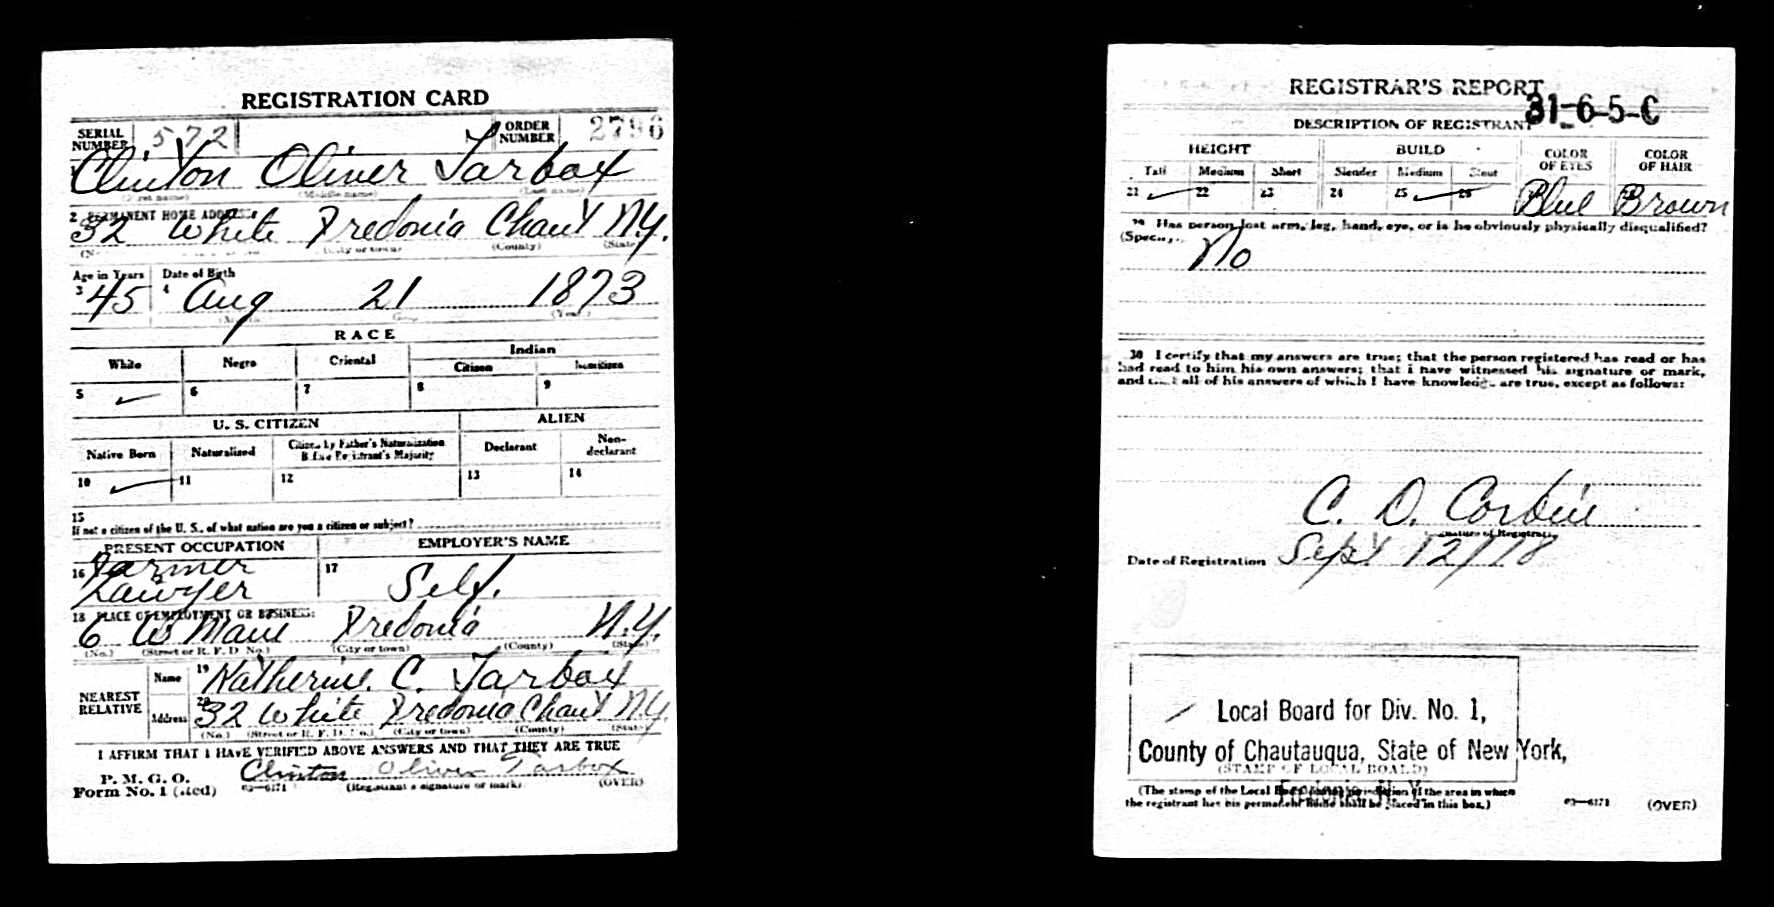 REGISTRATION CARD
SERIAL NUMBER 572 ORDER NUMBER 2796
Clinton Oliver Tarbox
(Middle name) (Last name)
2 PERMANENT HOME ADDRESS:
32 White Fredonia Chaut N.Y.
(City or town) (County) (State)
Age in Years Date of Birth
3 45 4 Aug 21 1873
(Year)
RACE
White Negro Oriental Indian
Citizen Noncitizen
5 ✓ 6 7 8 9
U. S. CITIZEN ALIEN
Native Born Naturalized Citizen by Father's Naturalization Before Registrant's Majority Declarant Non-declarant
10 ✓ 11 12 13 14
15
If not a citizen of the U. S., of what nation are you a citizen or subject?
PRESENT OCCUPATION EMPLOYER'S NAME
16 Farmer Lawyer 17 Self.
18 PLACE OF EMPLOYMENT OR BUSINESS:
6 W Main Fredonia N.Y.
(No.) (Street or R. F. D. No.) (City or town) (County) (State)
NEAREST RELATIVE
Name 19 Katherine C. Tarbox
Address 20 32 White Fredonia Chaut N.Y.
(No.) (Street or R. F. D. No.) (City or town) (County) (State)
I AFFIRM THAT I HAVE VERIFIED ABOVE ANSWERS AND THAT THEY ARE TRUE
P. M. G. O.
Form No. 1 (Red) Clinton Oliver Tarbox
03—6171 (Registrant's signature or mark) (OVER)
REGISTRAR'S REPORT
31-6-5-C
DESCRIPTION OF REGISTRANT
HEIGHT BUILD COLOR OF EYES COLOR OF HAIR
Tall Medium Short Slender Medium Stout
21 ✓ 22 23 24 25 ✓ 26 Blue Brown
29 Has person lost arm, leg, hand, eye, or is he obviously physically disqualified?
(Specify)
No
30 I certify that my answers are true; that the person registered has read or has
had read to him his own answers; that I have witnessed his signature or mark,
and that all of his answers of which I have knowledge are true, except as follows:
C. D. Corbin
(Signature of Registrar)
Date of Registration Sept 12/18
Local Board for Div. No. 1,
County of Chautauqua, State of New York,
(STAMP OF LOCAL BOARD)
(The stamp of the Local Board having jurisdiction of the area in which
the registrant has his permanent home shall be placed in this box.)
03—6171 (OVER)